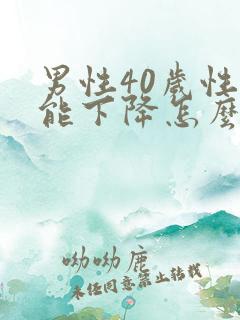 男性40歲性
能下降怎麼
呦呦鹿
未任同意禁止转载